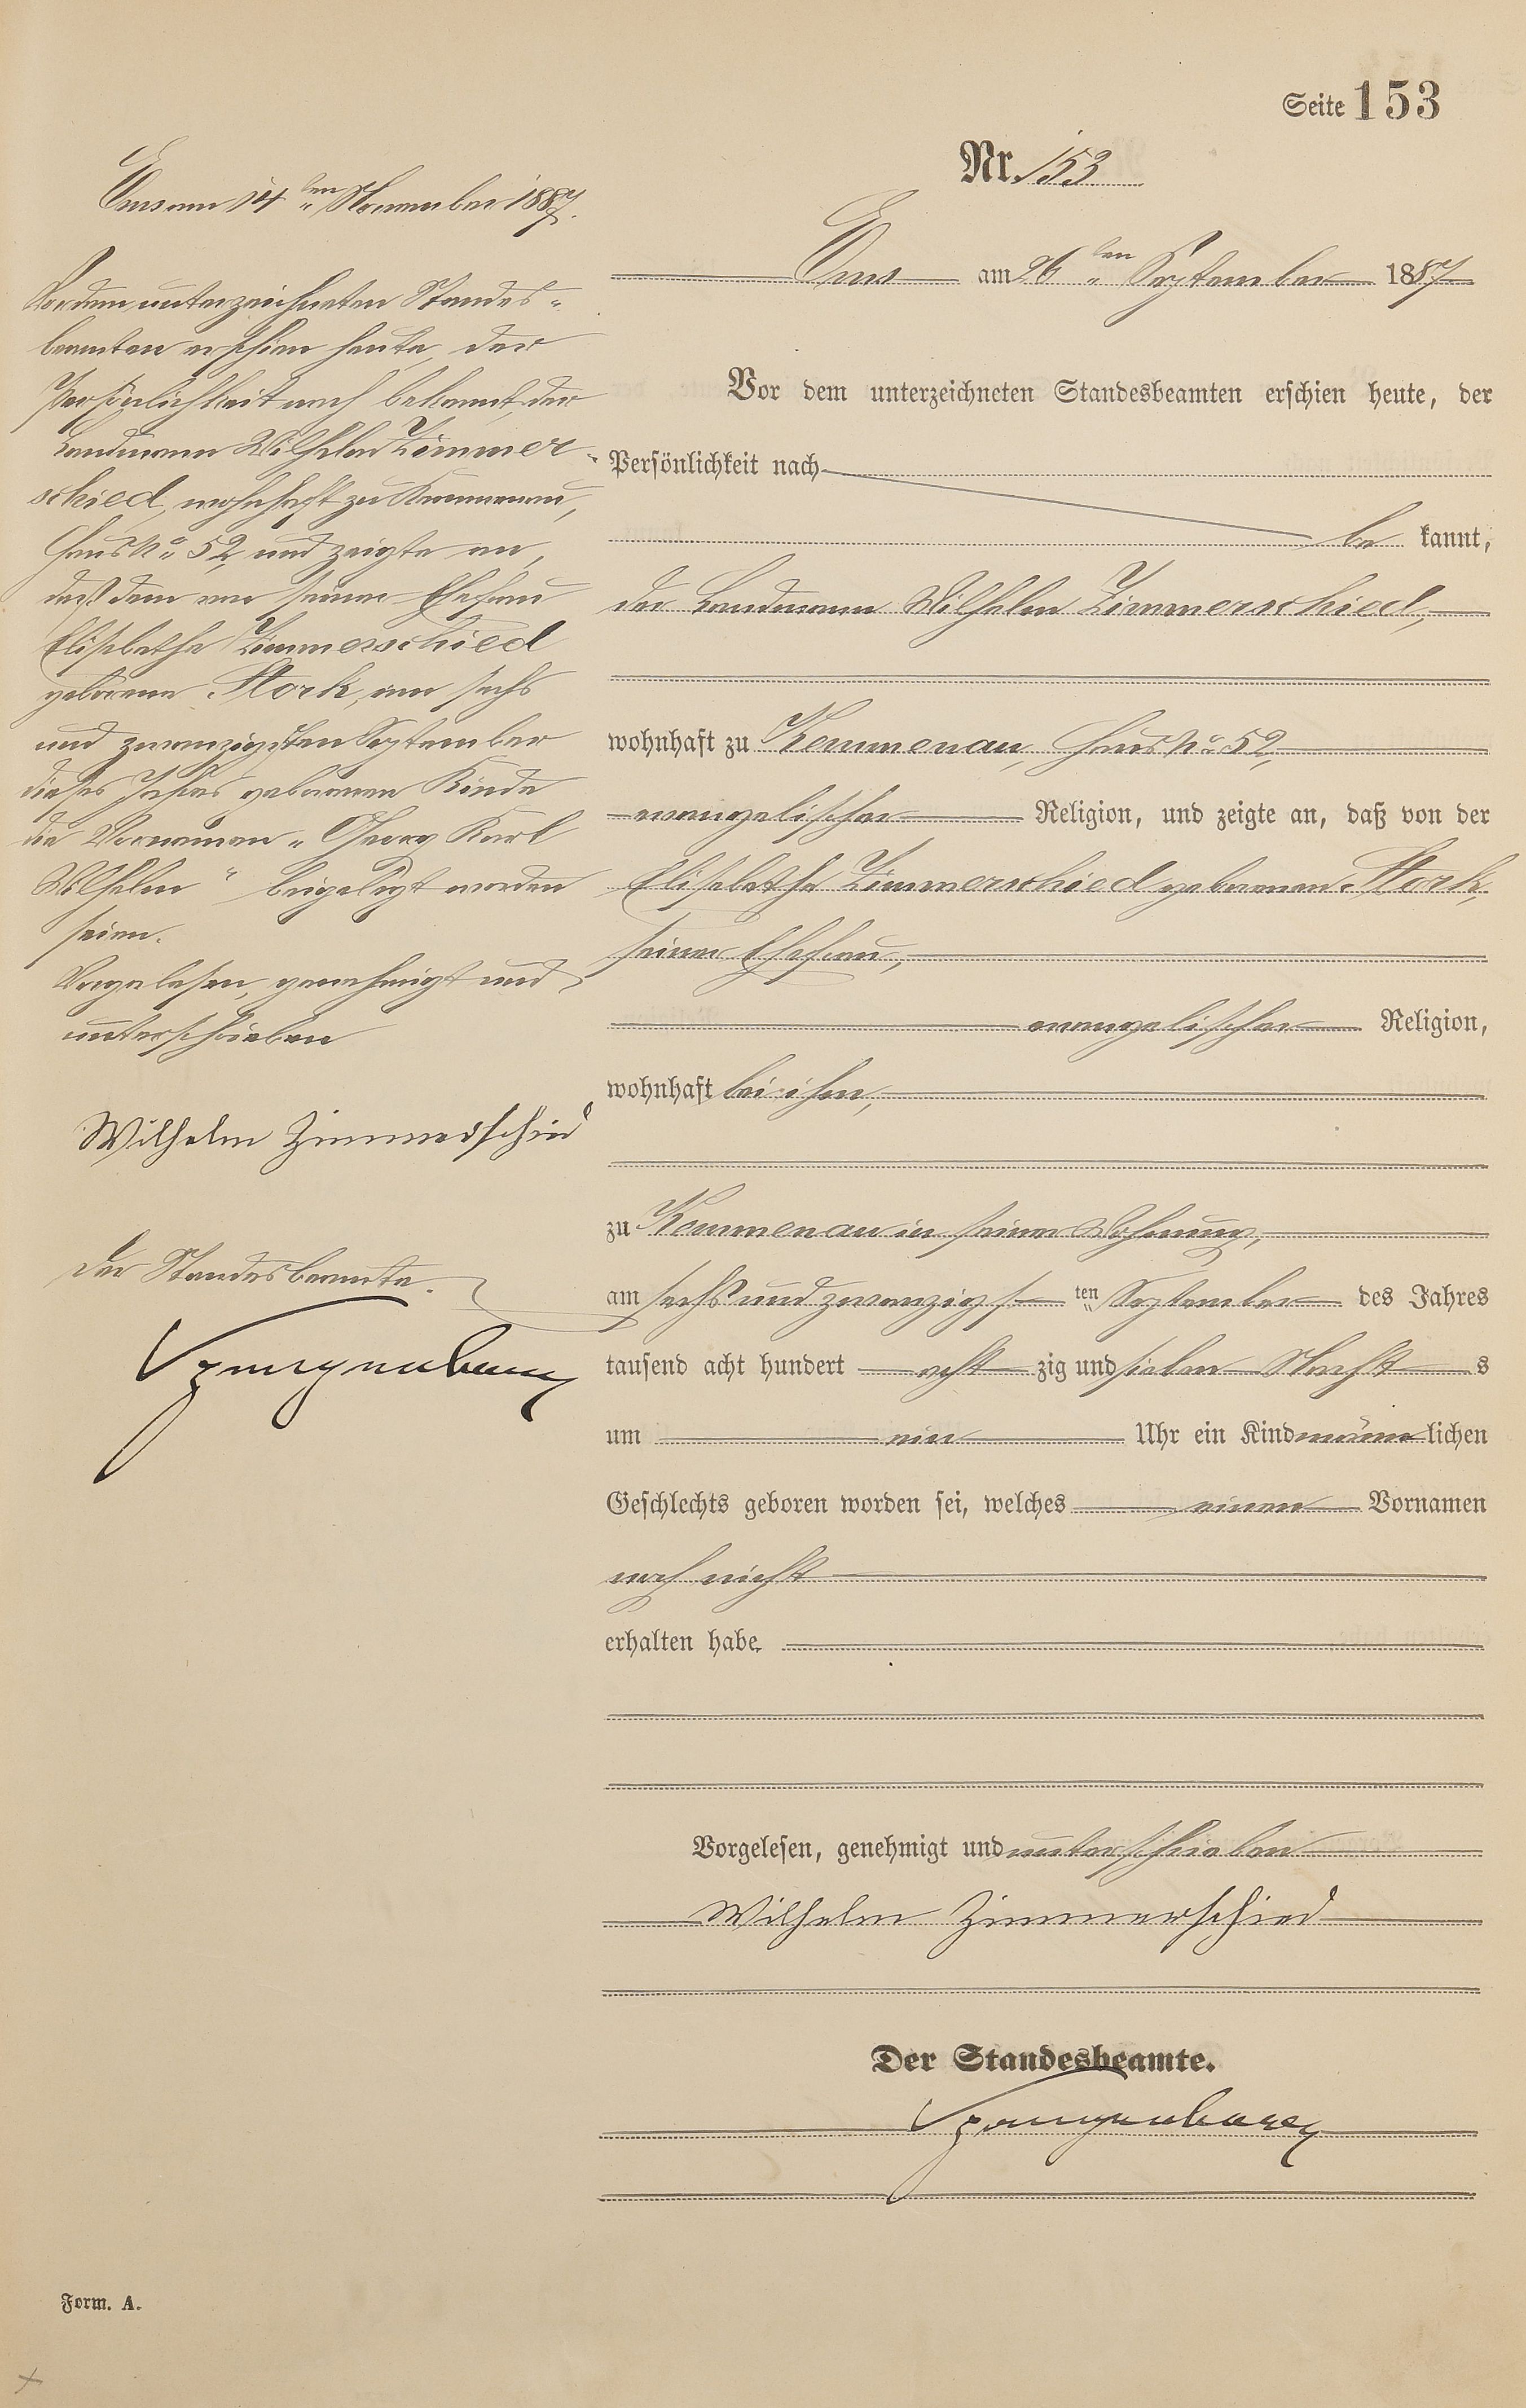 Seite 153
Nr. 153
Ems am 26ten September 1887
Vor dem unterzeichneten Standesbeamten erschien heute, der
Persönlichkeit nach
be kannt,
der Landmann Wilhelm Zimmerschied,
wohnhaft zu Kemmenau, Haus No 52,
evangelischer Religion, und zeigte an, daß von der
Elisabetha Zimmerschied geborenen Stork,
seiner Ehefrau,
evangelischer Religion,
wohnhaft bei ihm,
zu Kemmenau in seiner Wohnung,
am sechs und zwanzigsten September des Jahres
tausend acht hundert acht zig und sieben Nachts
um ein Uhr ein Kind männlichen
Geschlechts geboren worden sei, welches einen Vornamen
noch nicht
erhalten habe.
Vorgelesen, genehmigt und unterschrieben
Wilhelm Zimmerschied
Der Standesbeamte.
Spangenberg
Ems am 14ten November 1887.
Vor dem unterzeichneten Standes-
beamten erschien heute, der
Persönlichkeit nach bekannt, der
Landmann Wilhelm Zimmer-
schied, wohnhaft zu Kemmenau,
Haus No 52, und zeigte an,
daß dem von seiner Ehefrau
Elisabetha Zimmerschied
geborene Stork, am sechs
und zwanzigsten September
dieses Jahres geborenen Kinde
die Vornamen „Georg Karl
Wilhelm" beigelegt worden
seien.
Vorgelesen, genehmigt und
unterschrieben
Wilhelm Zimmerschied
Der Standesbeamte.
Spangenberg
Form. A.